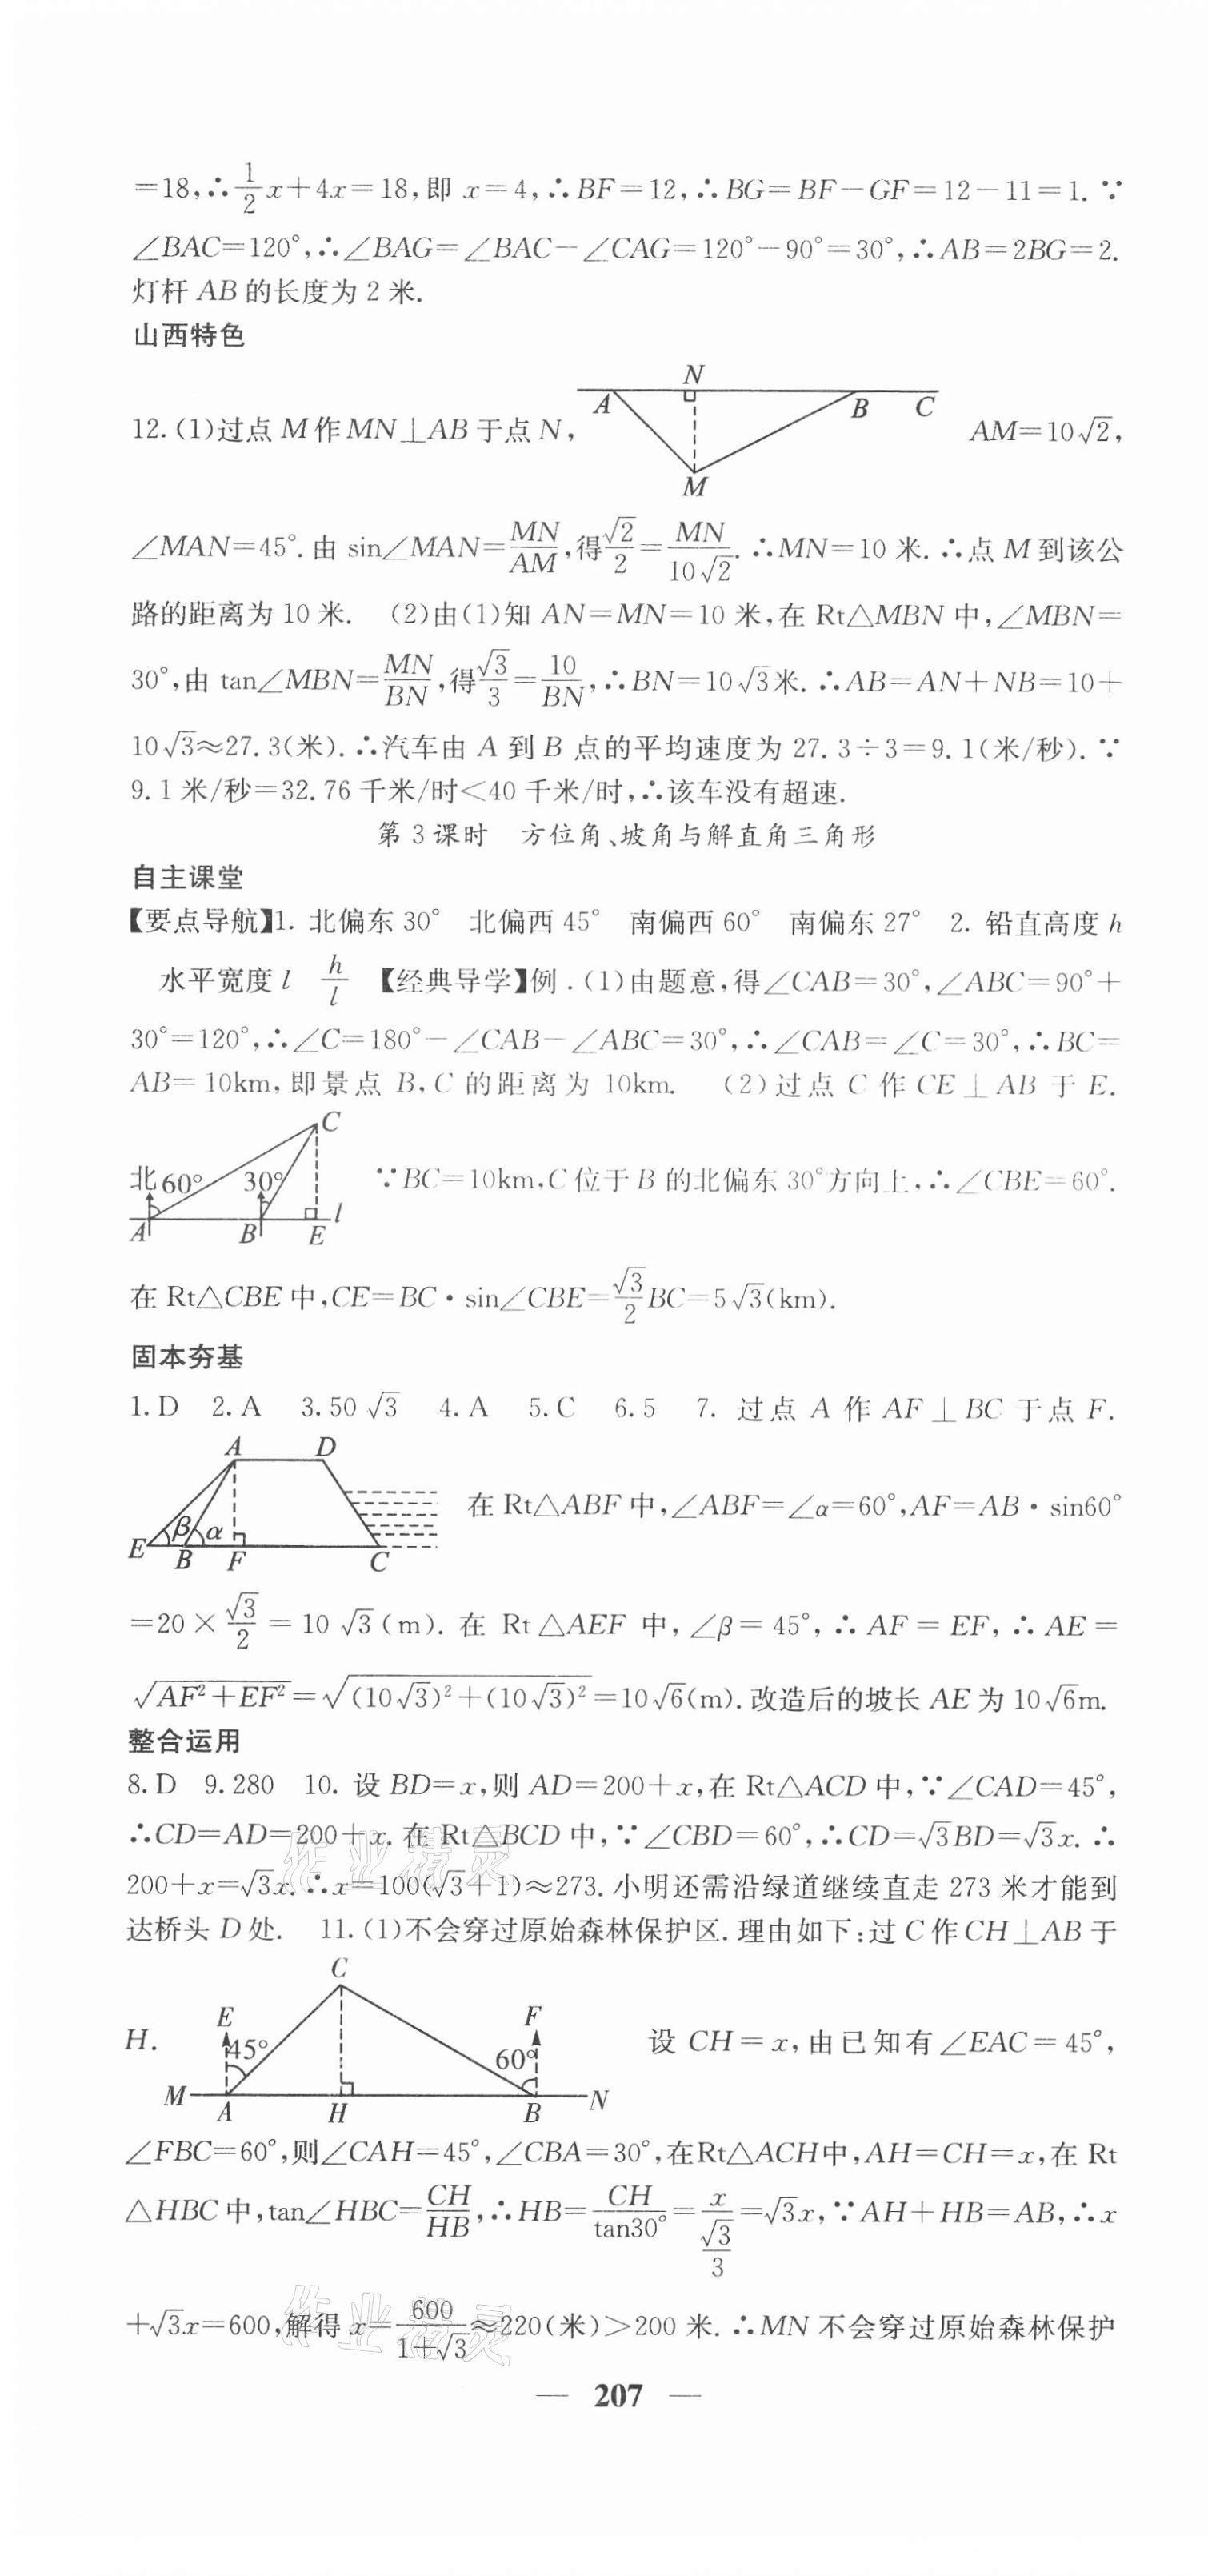 =18,∴1/2x+4x=18,即 x=4,∴BF=12,∴BG=BF-GF=12-11=1.∵
∠BAC=120°,∴∠BAG=∠BAC-∠CAG=120°-90°=30°,∴AB=2BG=2.
灯杆 AB 的长度为 2 米.
山西特色
12.(1)过点 M 作 MN⊥AB 于点 N,
N
A B C
M
AM=10√2,
∠MAN=45°.由 sin∠MAN=MN/AM,得√2/2=MN/10√2.∴MN=10 米.∴点 M 到该公
路的距离为 10 米. (2)由(1)知 AN=MN=10 米,在 Rt△MBN 中,∠MBN=
30°,由 tan∠MBN=MN/BN,得√3/3=10/BN,∴BN=10√3米.∴AB=AN+NB=10+
10√3≈27.3(米).∴汽车由 A 到 B 点的平均速度为 27.3÷3=9.1(米/秒).∵
9.1 米/秒=32.76 千米/时<40 千米/时,∴该车没有超速.
第 3 课时 方位角、坡角与解直角三角形
自主课堂
【要点导航】1. 北偏东 30° 北偏西 45° 南偏西 60° 南偏东 27° 2. 铅直高度 h
水平宽度 l h/l 【经典导学】例.(1)由题意,得∠CAB=30°,∠ABC=90°+
30°=120°,∴∠C=180°-∠CAB-∠ABC=30°,∴∠CAB=∠C=30°,∴BC=
AB=10km,即景点 B,C 的距离为 10km. (2)过点 C 作 CE⊥AB 于 E.
C
北 60° 30°
l
A B E
∵BC=10km,C 位于 B 的北偏东 30°方向上,∴∠CBE=60°.
在 Rt△CBE 中,CE=BC·sin∠CBE=√3/2BC=5√3(km).
固本夯基
1.D 2.A 3.50√3 4.A 5.C 6.5 7. 过点 A 作 AF⊥BC 于点 F.
A D
β α
E B F C
在 Rt△ABF 中,∠ABF=∠α=60°,AF=AB·sin60°
=20×√3/2=10√3(m).在 Rt△AEF 中,∠β=45°,∴AF=EF,∴AE=
√(AF²+EF²)=√((10√3)²+(10√3)²)=10√6(m).改造后的坡长 AE 为 10√6m.
整合运用
8.D 9.280 10. 设 BD=x,则 AD=200+x,在 Rt△ACD 中,∵∠CAD=45°,
∴CD=AD=200+x.在 Rt△BCD 中,∵∠CBD=60°,∴CD=√3BD=√3x.∴
200+x=√3x.∴x=100(√3+1)≈273.小明还需沿绿道继续直走 273 米才能到
达桥头 D 处. 11.(1)不会穿过原始森林保护区.理由如下:过 C 作 CH⊥AB 于
H.
C
E F
45° 60°
M A H B N
设 CH=x,由已知有∠EAC=45°,
∠FBC=60°,则∠CAH=45°,∠CBA=30°,在Rt△ACH中,AH=CH=x,在 Rt
△HBC 中,tan∠HBC=CH/HB,∴HB=CH/tan30°=x/(√3/3)=√3x,∵AH+HB=AB,∴x
+√3x=600,解得 x=600/(1+√3)≈220(米)>200 米.∴MN 不会穿过原始森林保护
— 207 —
作业精灵
作业精灵